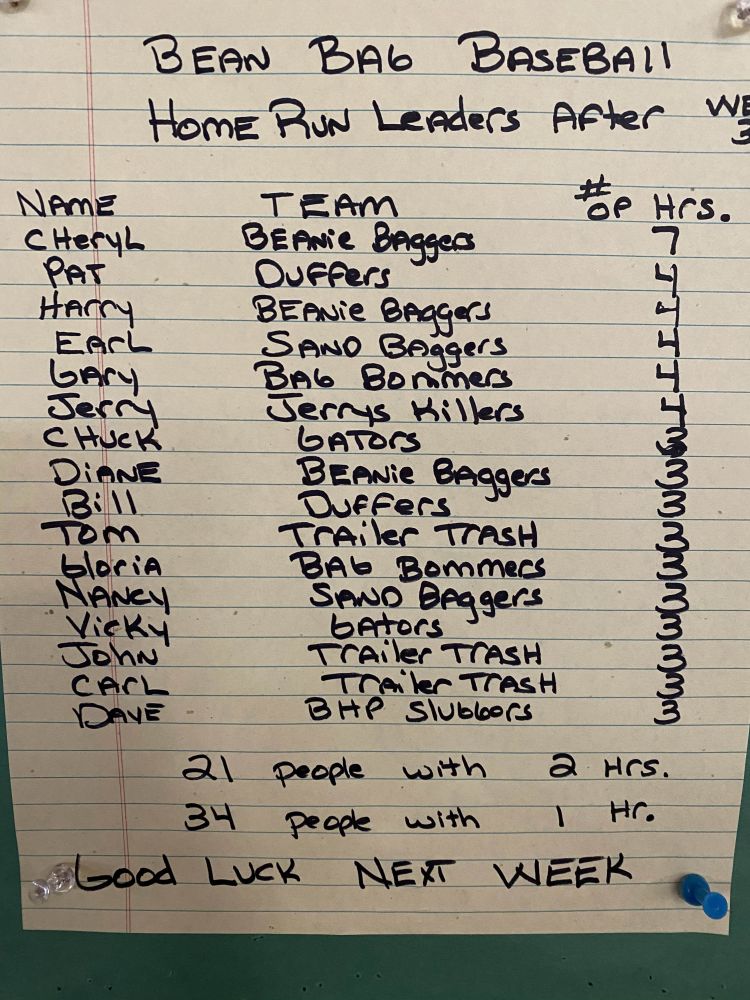 BEAN BAG BASEBAll
HOME RUN LeADers AFter WE
3
NAME TEAM # OF Hrs.
CHeryL BEANie BAggers 7
PAT DuFFers 4
HArry BEANie BAggers 4
EArL SAND BAggers 4
GAry BAG Bommers 4
Jerry Jerrys Killers 4
CHuCK GATOrs 3
DiANE BEANie BAggers 3
Bill DuFFers 3
TOM TrAiler TrASH 3
GloriA BAG Bommers 3
NANCy SAND BAggers 3
VicKy GAtors 3
JOhN TrAiler TrASH 3
CArL TrAiler TrASH 3
DAVE BHP Sluggors 3
21 people with 2 Hrs.
34 people with 1 Hr.
Good LUCK NEXT WEEK